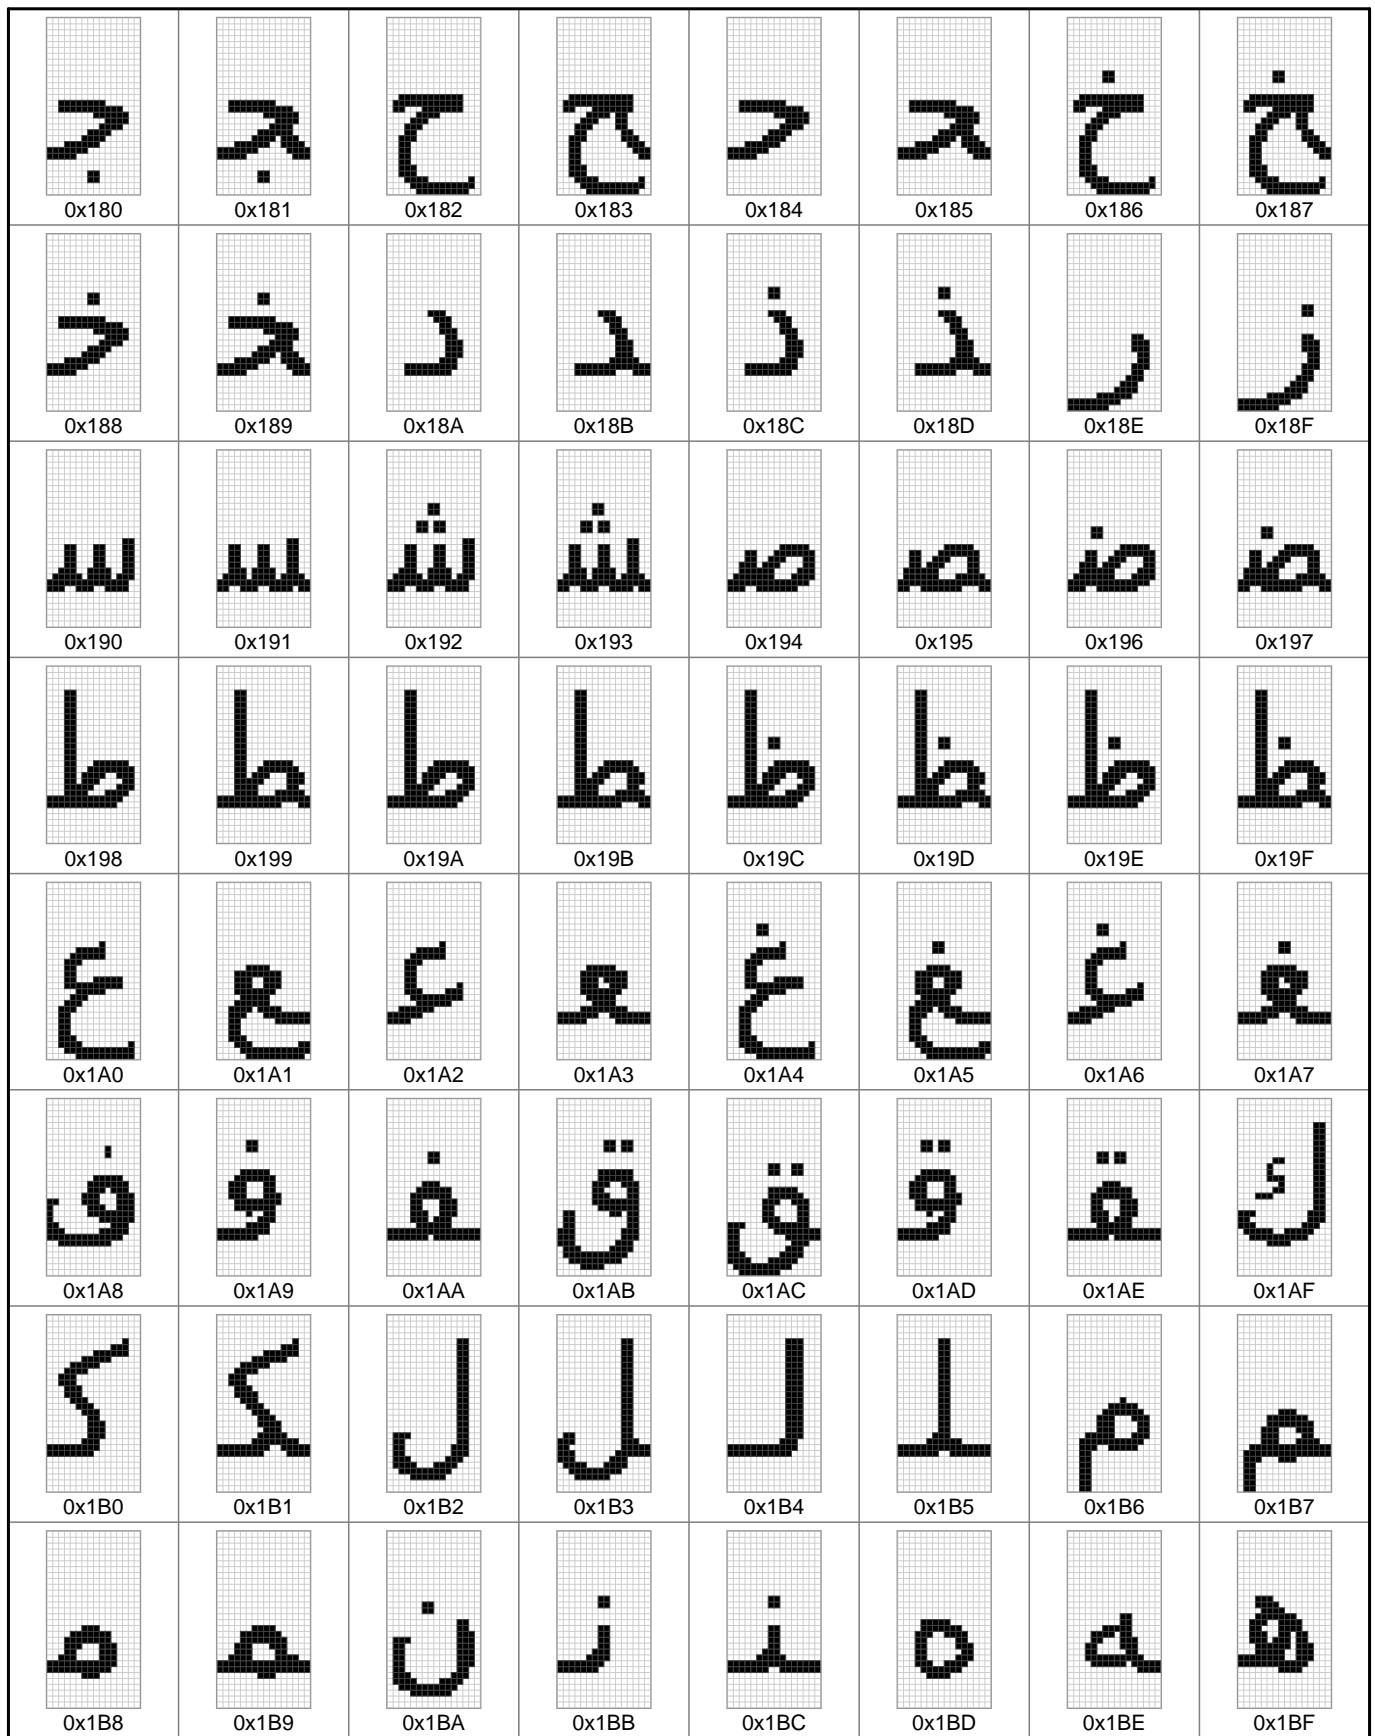 ﺟ ﺠ ﺡ ﺢ ﺣ ﺤ ﺥ ﺦ
0x180 0x181 0x182 0x183 0x184 0x185 0x186 0x187
ﺧ ﺨ ﺩ ﺪ ﺫ ﺬ ﺭ ﺯ
0x188 0x189 0x18A 0x18B 0x18C 0x18D 0x18E 0x18F
ﺳ ﺴ ﺷ ﺸ ﺻ ﺼ ﺿ ﻀ
0x190 0x191 0x192 0x193 0x194 0x195 0x196 0x197
ﻁ ﻂ ﻃ ﻄ ﻅ ﻆ ﻇ ﻈ
0x198 0x199 0x19A 0x19B 0x19C 0x19D 0x19E 0x19F
ﻉ ﻊ ﻋ ﻌ ﻍ ﻎ ﻏ ﻐ
0x1A0 0x1A1 0x1A2 0x1A3 0x1A4 0x1A5 0x1A6 0x1A7
ﻑ ﻓ ﻔ ﻕ ﻖ ﻗ ﻘ ﻙ
0x1A8 0x1A9 0x1AA 0x1AB 0x1AC 0x1AD 0x1AE 0x1AF
ﻛ ﻜ ﻝ ﻞ ﻟ ﻠ ﻡ ﻢ
0x1B0 0x1B1 0x1B2 0x1B3 0x1B4 0x1B5 0x1B6 0x1B7
ﻣ ﻤ ﻥ ﻧ ﻨ ﻩ ﻪ ﻫ
0x1B8 0x1B9 0x1BA 0x1BB 0x1BC 0x1BD 0x1BE 0x1BF